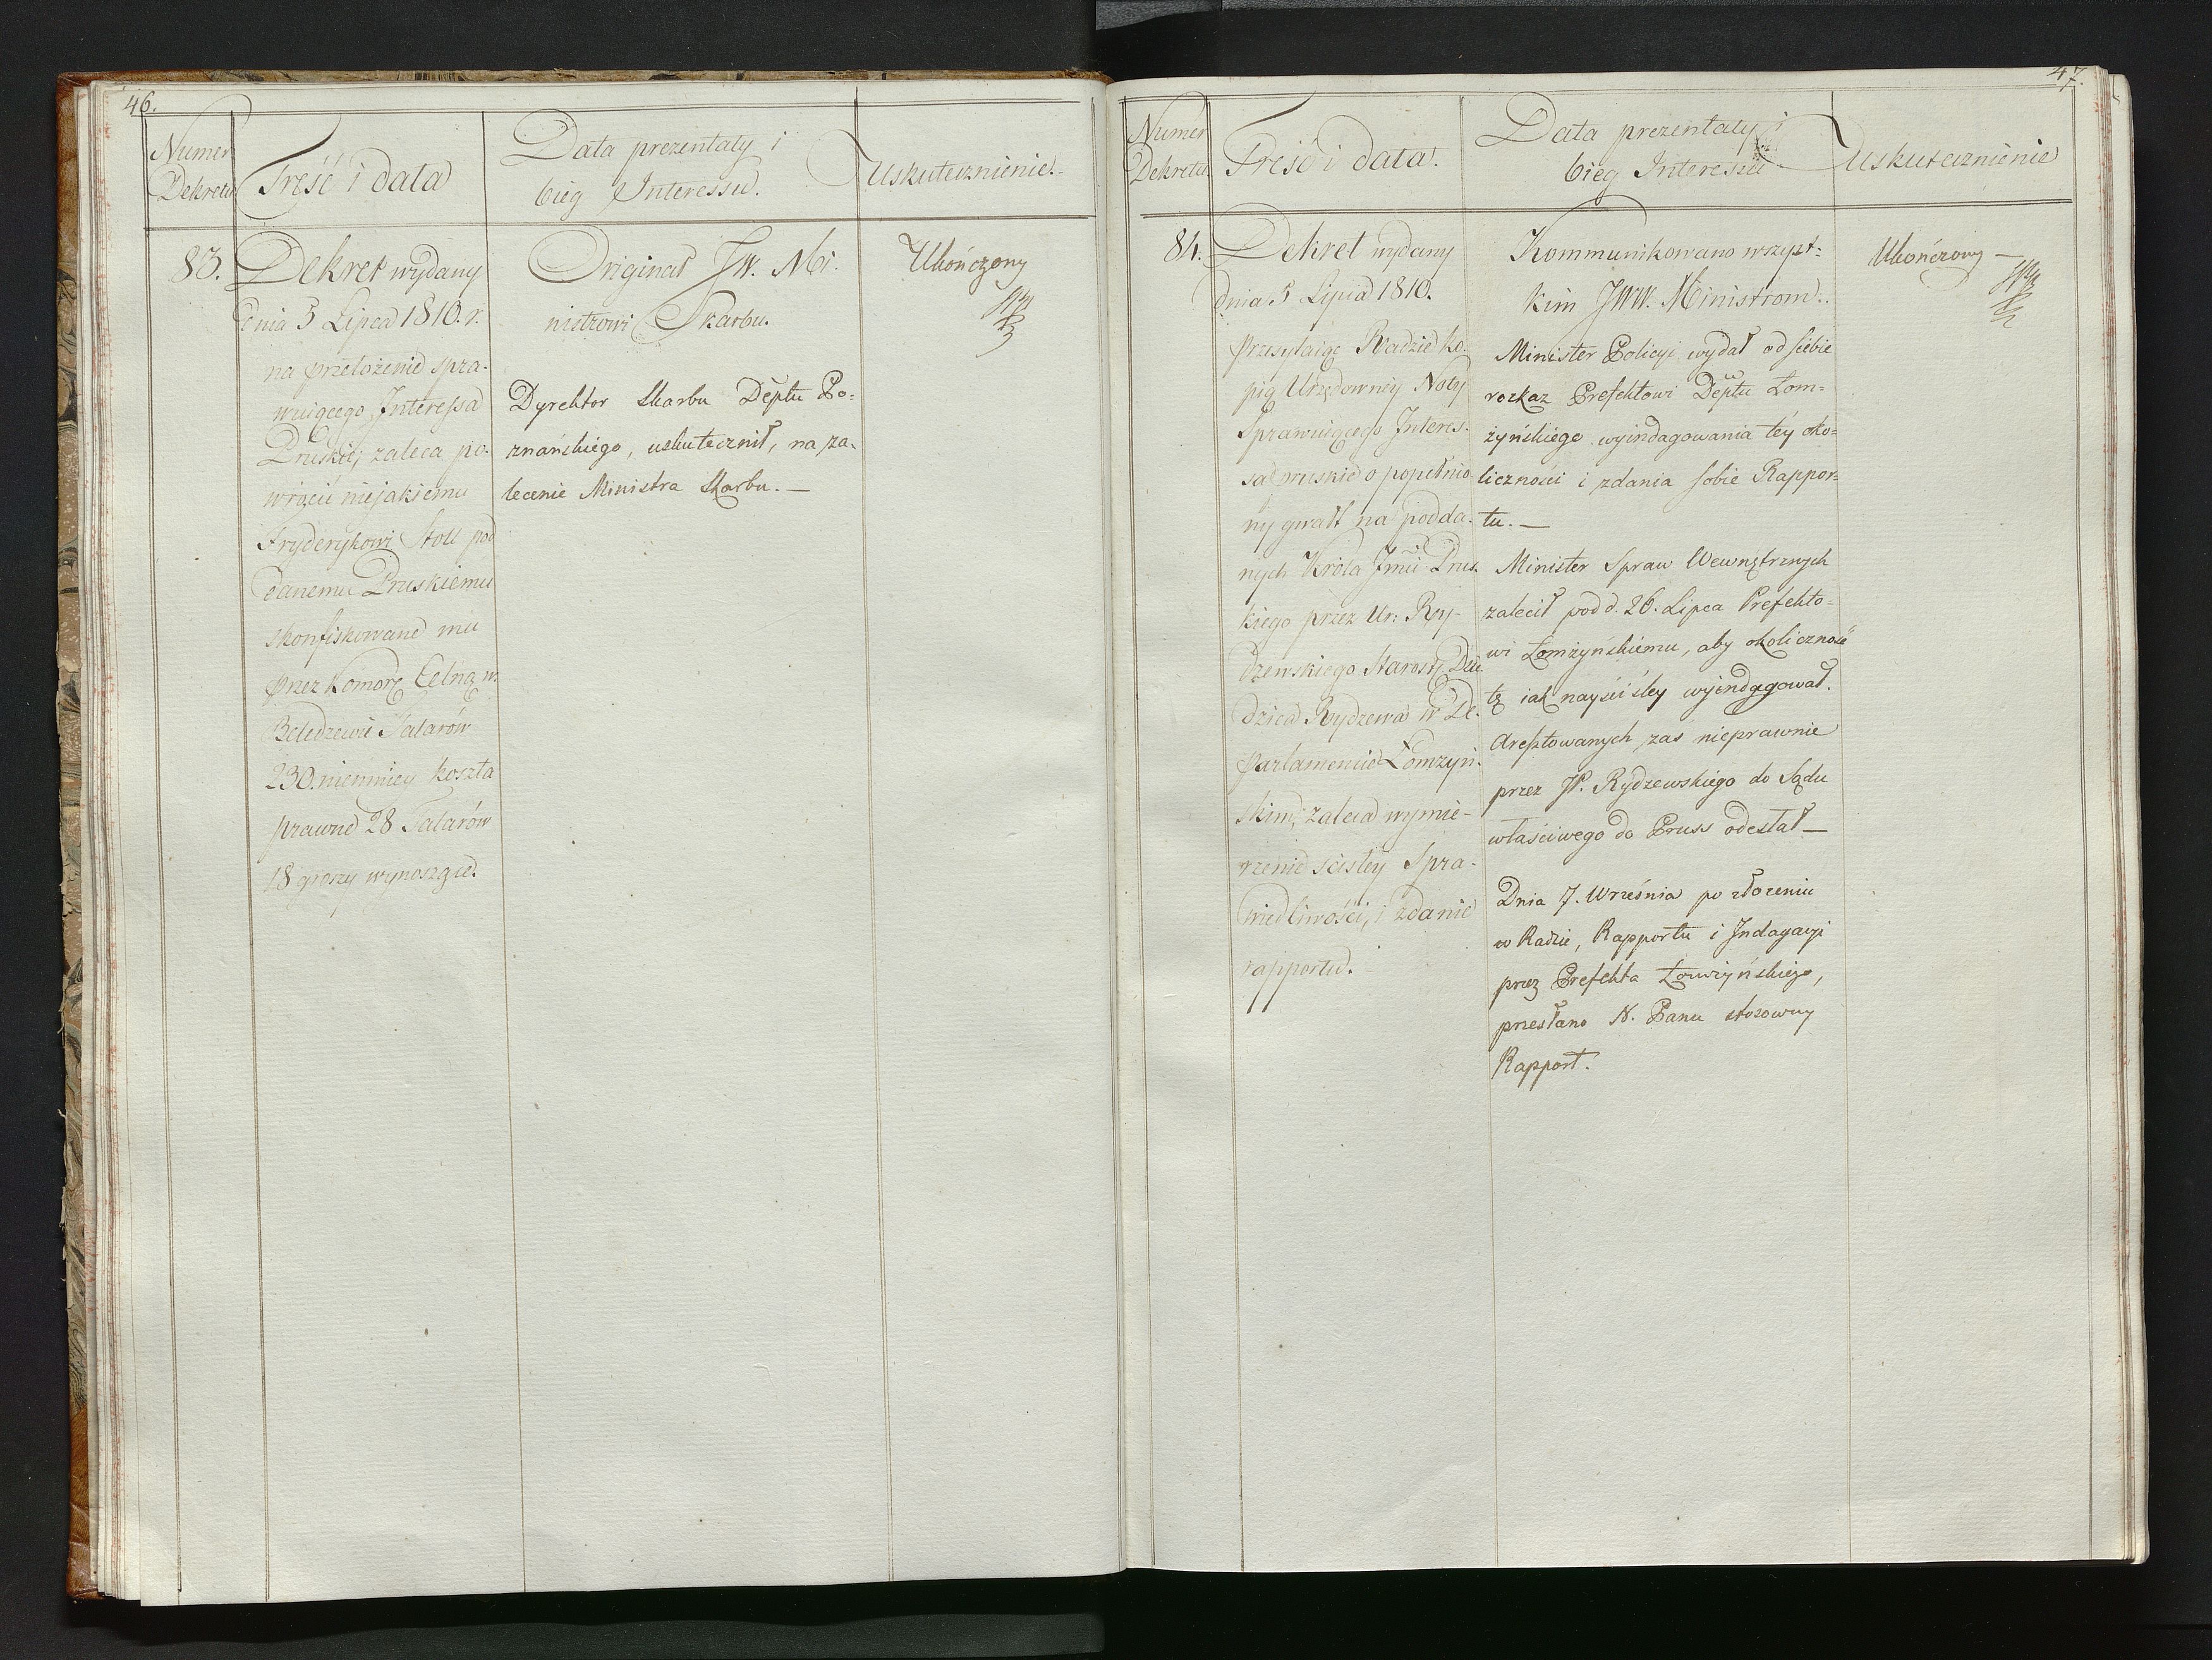 46.
Numer
Dekretu
Treść i data
Data prezentaty i
bieg Interessu.
Uskutecznienie.
83.
Dekret wydany
dnia 5 Lipca 1810. r.
na przełożenie spra-
wuiącego Interessa
Pruskie, zaleca po-
wrócić niejakiemu
Fryderykowi Stoll pod
danemu Pruskiemu
skonfiskowane mu
przez Komorę Celną w
Talarów
230. niemniey koszta
prawne 28 Talarów
18 groszy wynoszące.
Originał JW. Mi-
nistrowi Skarbu.
Dyrektor Skarbu Deptu Po-
znańskiego, uskutecznił, na za-
lecenie Ministra Skarbu. —
Ukończony
47.
Numer
Dekretu
Treść i data.
Data prezentaty i
bieg Interessu
Uskutecznienie
84.
Dekret wydany
dnia 5 Lipca 1810.
przesyłaiąc Radzie ko-
pią Urzędowney Noty
Sprawuiącego Interes-
sa pruskie o popełnio-
ny gwałt na podda-
nych Króla Jmci Prus-
kiego przez Ur: Ry-
dzewskiego Starostę Dzie-
dzica Rydzewa w De-
partamencie Łomżyń-
skim, zaleca wymie-
rzenie scisłey Spra-
wiedliwości, i zdanie
rapportu.
Kommunikowano wszyst-
kim JWW. Ministrom.
Minister Policyi wydał od siebie
rozkaz Prefektowi Deptu Łom-
żyńskiego wyindagowania téy oko-
liczności i zdania sobie Rappor-
tu. —
Minister Spraw Wewnętrznych
zalecił pod d. 26. Lipca Prefekto-
wi Łomżyńskiemu, aby okoliczność
tę iak nayściśley wyindagował.
Aresztowanych zaś nieprawnie
przez JP. Rydzewskiego do Sądu
właściwego do Pruss odesłał —
Dnia 7. Września po złożeniu
w Radzie, Rapportu i Indagacyi
przez Prefekta Łomżyńskiego,
przesłano N. Panu stosowny
Rapport.
Ukończony —